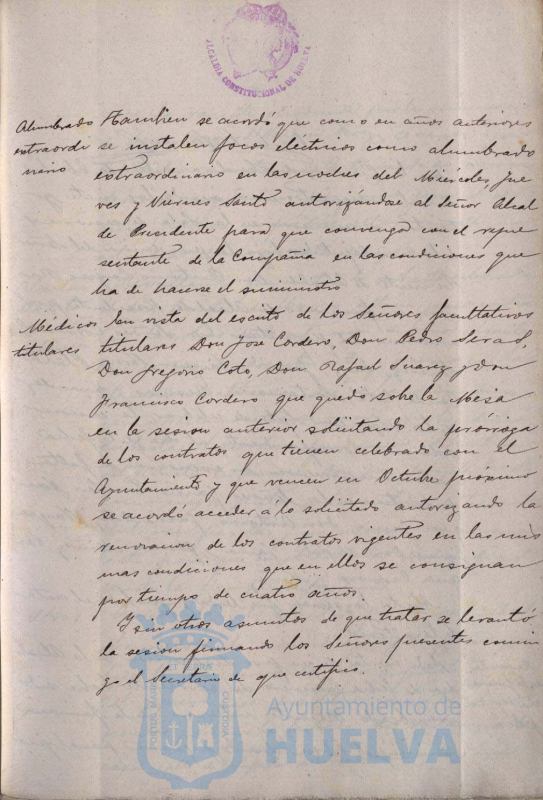 ALCALDIA CONSTITUCIONAL DE HUELVA
Alumbrado
extraordi
nario
Tambien se acordó que como en años anteriores
se instalen focos eléctricos como alumbrado
extraordinario en las noches del Miércoles, Jue
ves y Viernes Santo autorizándose al Señor Alcal
de Presidente para que convenga con el repre
sentante de la Compañia en las condiciones que
ha de hacerse el suministro
Médicos
titulares
En vista del escrito de los Señores facultativos
titulares Don José Cordero, Don Pedro Seras,
Don Gregorio Coto, Don Rafael Suarez y Don
Francisco Cordero que quedó sobre la Mesa
en la sesion anterior solicitando la prórroga
de los contratos que tienen celebrado con el
Ayuntamiento y que vencen en Octubre próximo
se acordó acceder á lo solicitado autorizando la
renovacion de los contratos vigentes en las mis
mas condiciones que en ellos se consignan
por tiempo de cuatro años.
Y sin otros asuntos de que tratar se levantó
la sesion firmando los Señores presentes conmi
go el Secretario de que certifico.
PORTUS MARIS ET TERRAE CUSTODIA
Ayuntamiento de
HUELVA